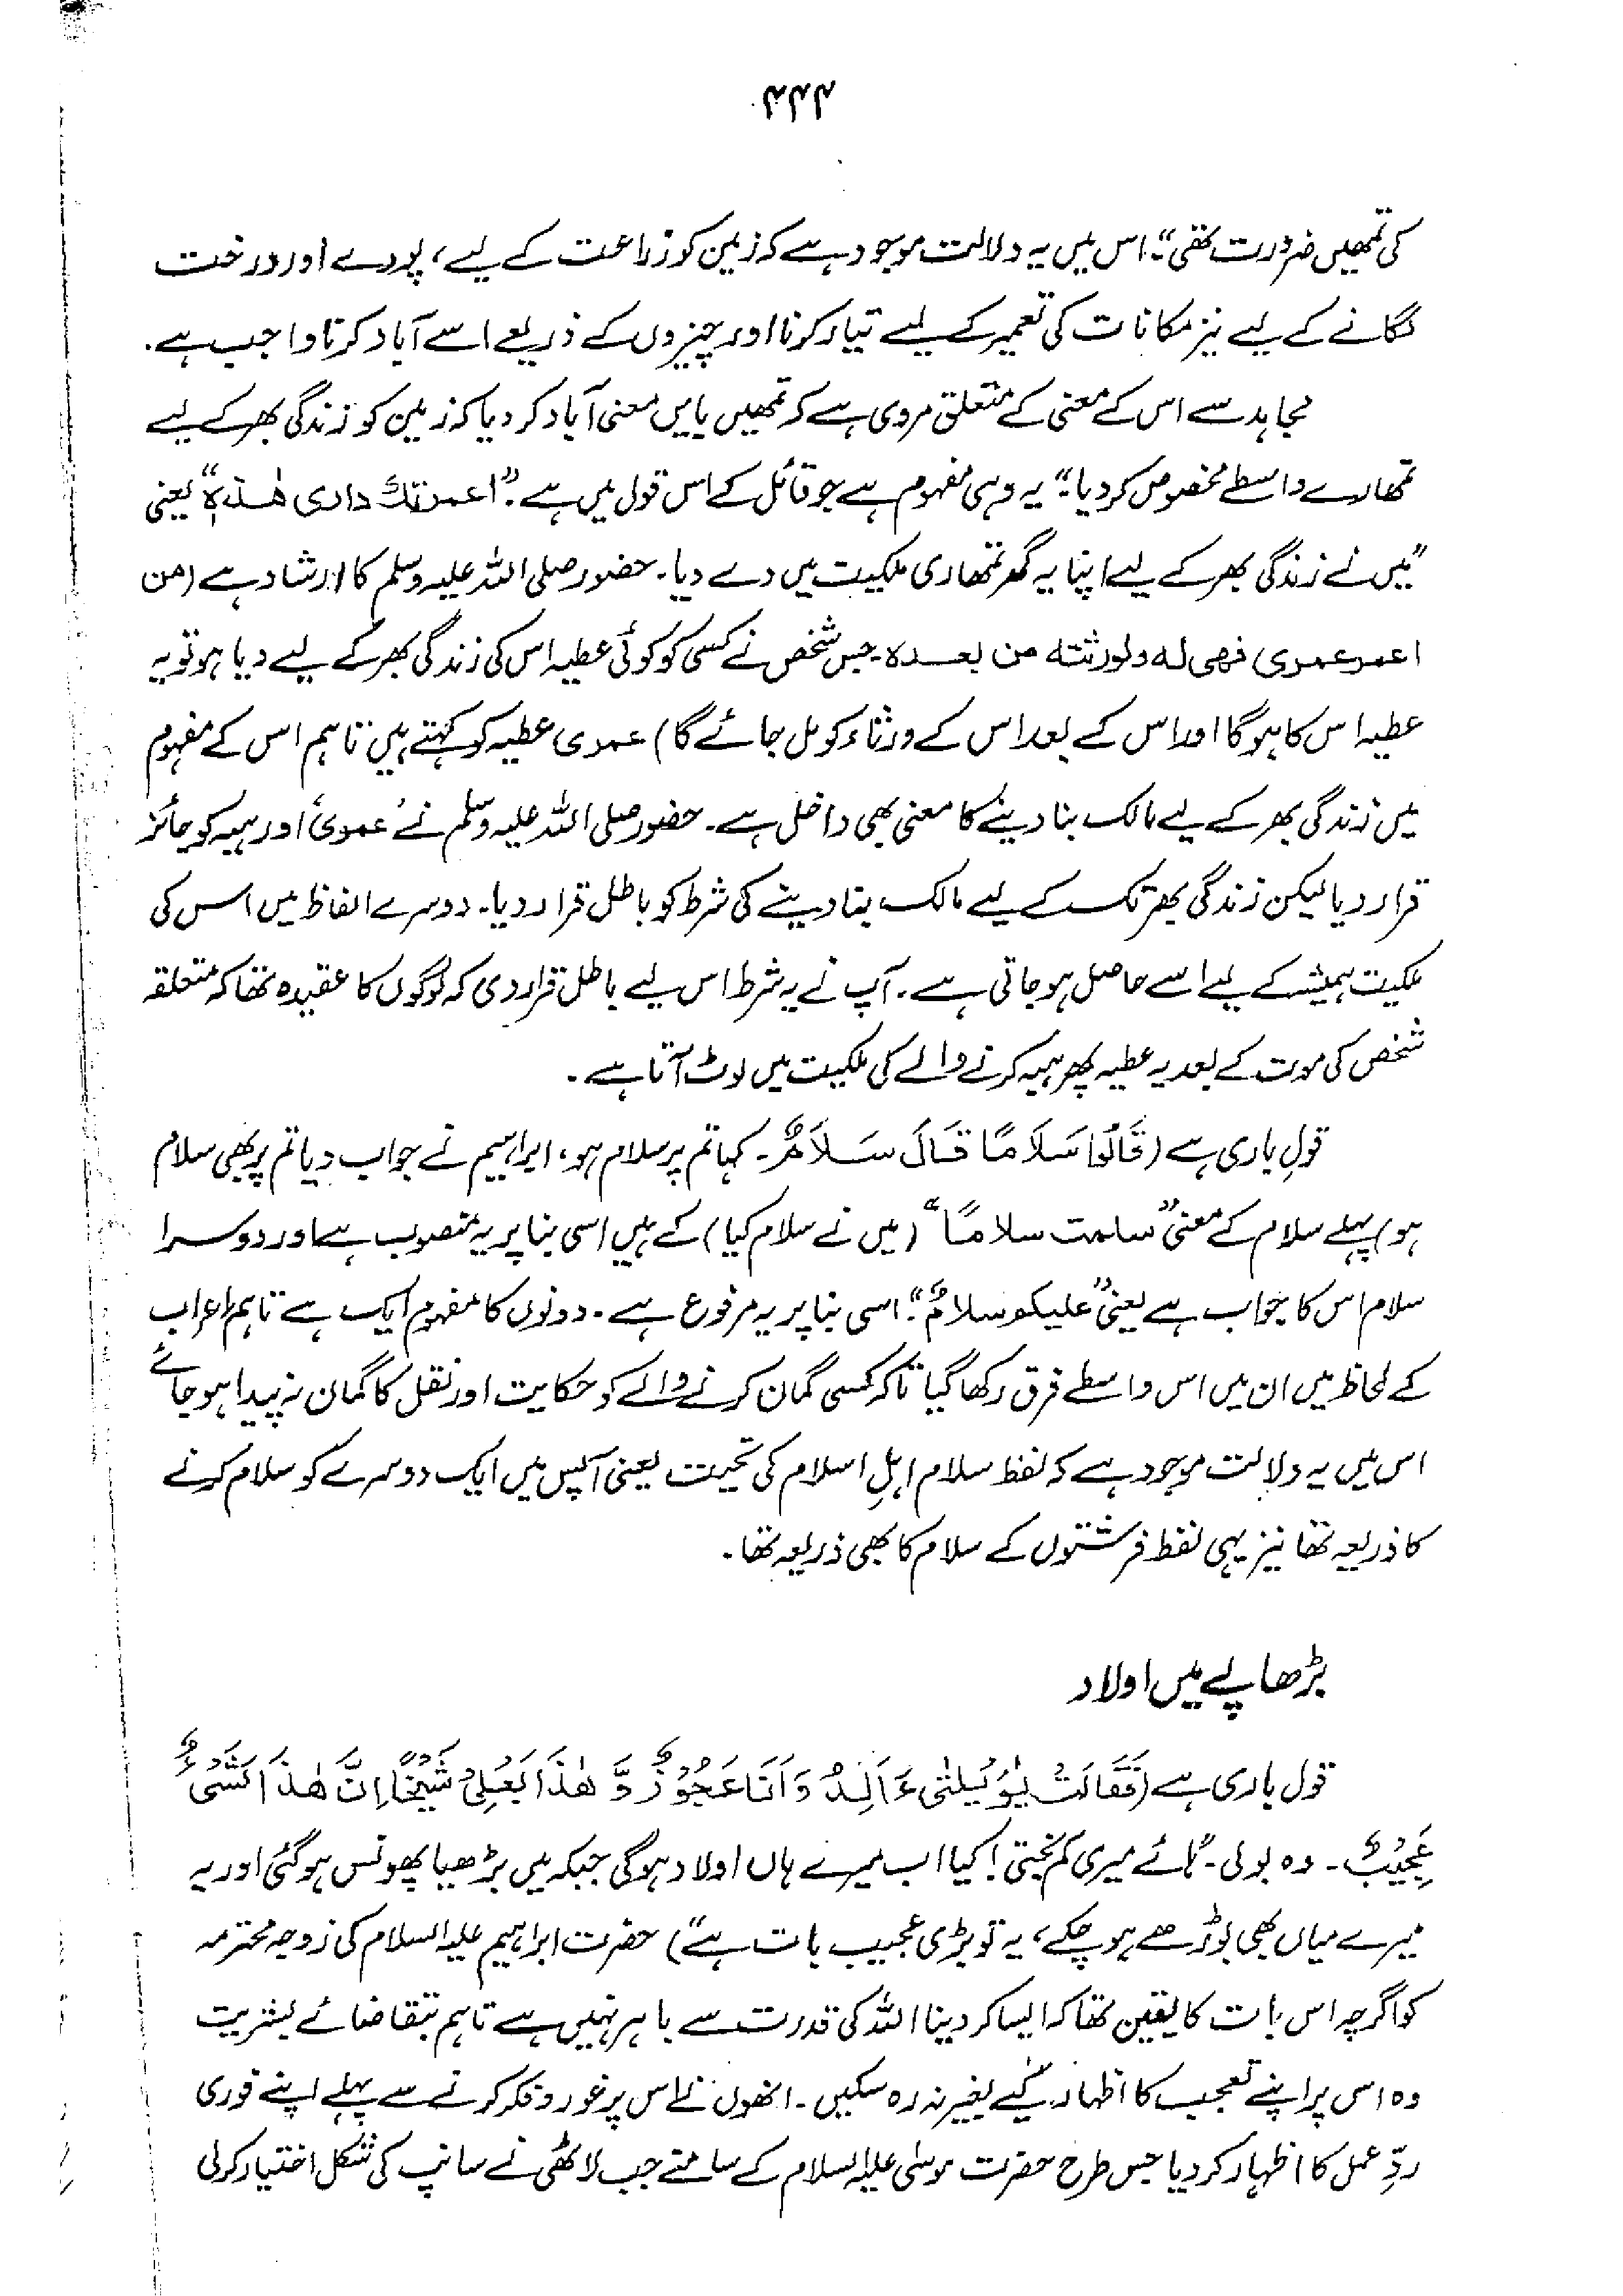 ۴۴۴
کی تمھیں ضرورت تھی“۔ اس میں یہ دلالت موجود ہے کہ زمین کو زراعت کے لیے، پودے اور درخت
لگانے کے لیے نیز مکانات کی تعمیر کے لیے تیار کرنا اور چیزوں کے ذریعے اسے آباد کرنا واجب ہے۔
مجاہد سے اس کے معنی کے متعلق مروی ہے کہ تمھیں بایں معنی آباد کر دیا کہ زمین کو زندگی بھر کے لیے
تمھارے واسطے مخصوص کر دیا“۔ یہ وہی مفہوم ہے جو قائل کے اس قول میں ہے۔ ”اعمرتك داری هٰذهٖ“ یعنی
”میں نے زندگی بھر کے لیے اپنا یہ گھر تمھاری ملکیت میں دے دیا۔ حضور صلی اللہ علیہ وسلم کا ارشاد ہے (من
اعمر عمری فهی له ولورثته من بعده۔ جس شخص نے کسی کو کوئی عطیہ اس کی زندگی بھر کے لیے دیا ہو تو یہ
عطیہ اس کا ہو گا اور اس کے بعد اس کے ورثاء کو مل جائے گا) عمریٰ عطیہ کو کہتے ہیں تاہم اس کے مفہوم
میں زندگی بھر کے لیے مالک بنا دینے کا معنی بھی داخل ہے۔ حضور صلی اللہ علیہ وسلم نے ’عمریٰ‘ اور ہبہ کو جائز
قرار دیا لیکن زندگی بھر تک کے لیے مالک بنا دینے کی شرط کو باطل قرار دیا۔ دوسرے الفاظ میں اس کی
ملکیت ہمیشہ کے لیے اسے حاصل ہو جاتی ہے۔ آپ نے یہ شرط اس لیے باطل قرار دی کہ لوگوں کا عقیدہ تھا کہ متعلقہ
شخص کی موت کے بعد یہ عطیہ پھر ہبہ کرنے والے کی ملکیت میں لوٹ آتا ہے۔
قولِ باری ہے (قَالُوْا سَلَامًا قَالَ سَلَامٌ۔ کہا تم پر سلام ہو، ابراہیم نے جواب دیا تم پر بھی سلام
ہو) پہلے سلام کے معنی ”سلمت سلامًا“ (میں نے سلام کیا) کے ہیں اسی بنا پر یہ منصوب ہے اور دوسرا
سلام اس کا جواب ہے یعنی ”علیکم سلامٌ“۔ اسی بنا پر یہ مرفوع ہے۔ دونوں کا مفہوم ایک ہے تاہم اعراب
کے لحاظ میں ان میں اس واسطے فرق رکھا گیا تاکہ کسی گمان کرنے والے کو حکایت اور نقل کا گمان نہ پیدا ہو جائے
اس میں یہ دلالت موجود ہے کہ لفظ سلام اہلِ اسلام کی تحیت یعنی آپس میں ایک دوسرے کو سلام کرنے
کا ذریعہ تھا نیز یہی لفظ فرشتوں کے سلام کا بھی ذریعہ تھا۔
بڑھاپے میں اولاد
قول باری ہے (فَقَالَتْ يٰوَيْلَتٰى ءَاَلِدُ وَاَنَا عَجُوْزٌ وَّ هٰذَا بَعْلِىْ شَيْخًا اِنَّ هٰذَا لَشَىْءٌ
عَجِيْبٌ۔ وہ بولی۔ ”ہائے میری کم بختی! کیا اب میرے ہاں اولاد ہوگی جبکہ میں بڑھیا پھونس ہو گئی اور یہ
میرے میاں بھی بوڑھے ہو چکے، یہ تو بڑی عجیب بات ہے“) حضرت ابراہیم علیہ السلام کی زوجہ محترمہ
کو اگرچہ اس بات کا یقین تھا کہ ایسا کر دینا اللہ کی قدرت سے باہر نہیں ہے تاہم بتقاضائے بشریت
وہ اسی پر اپنے تعجب کا اظہار کیے بغیر نہ رہ سکیں۔ انھوں نے اس پر غور و فکر کرنے سے پہلے اپنے فوری
ردِّ عمل کا اظہار کر دیا جس طرح حضرت موسٰی علیہ السلام کے سامنے جب لاٹھی نے سانپ کی شکل اختیار کر لی